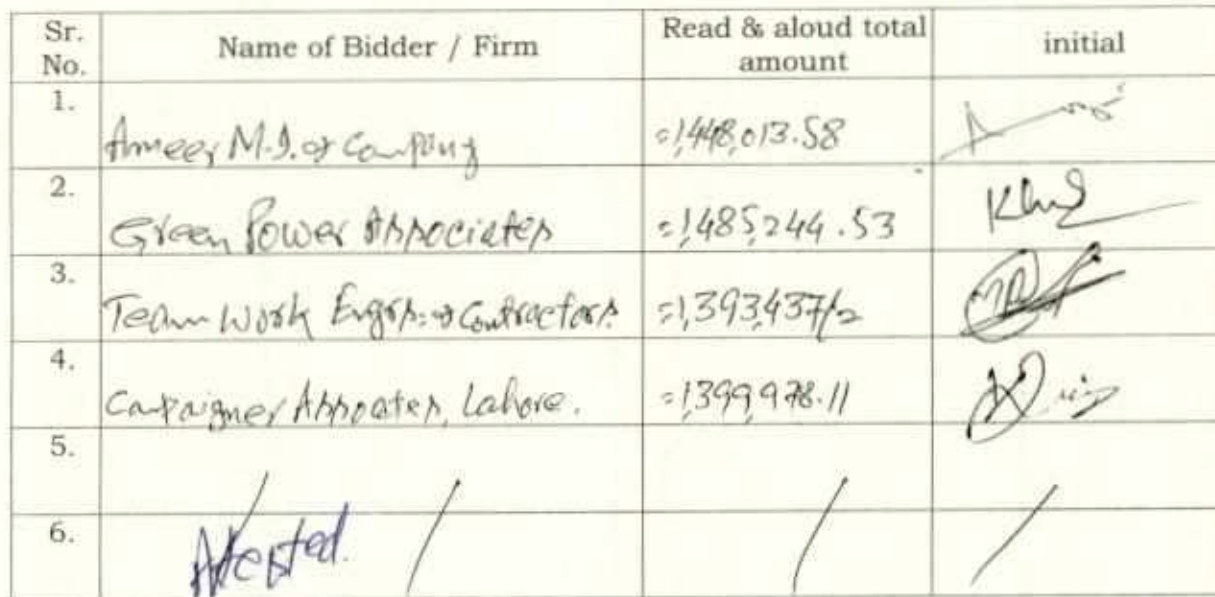 Sr. No. Name of Bidder / Firm Read & aloud total amount initial
1. Ameer M.I. & Company =1,448,013.58
2. Green Power Associates =1,485,244.53
3. Team Work Engrs. & Contractors. =1,393,437/2
4. Campaigner Assoates, Lahore. =1,399,978.11
5. / / / /
6. Attested.